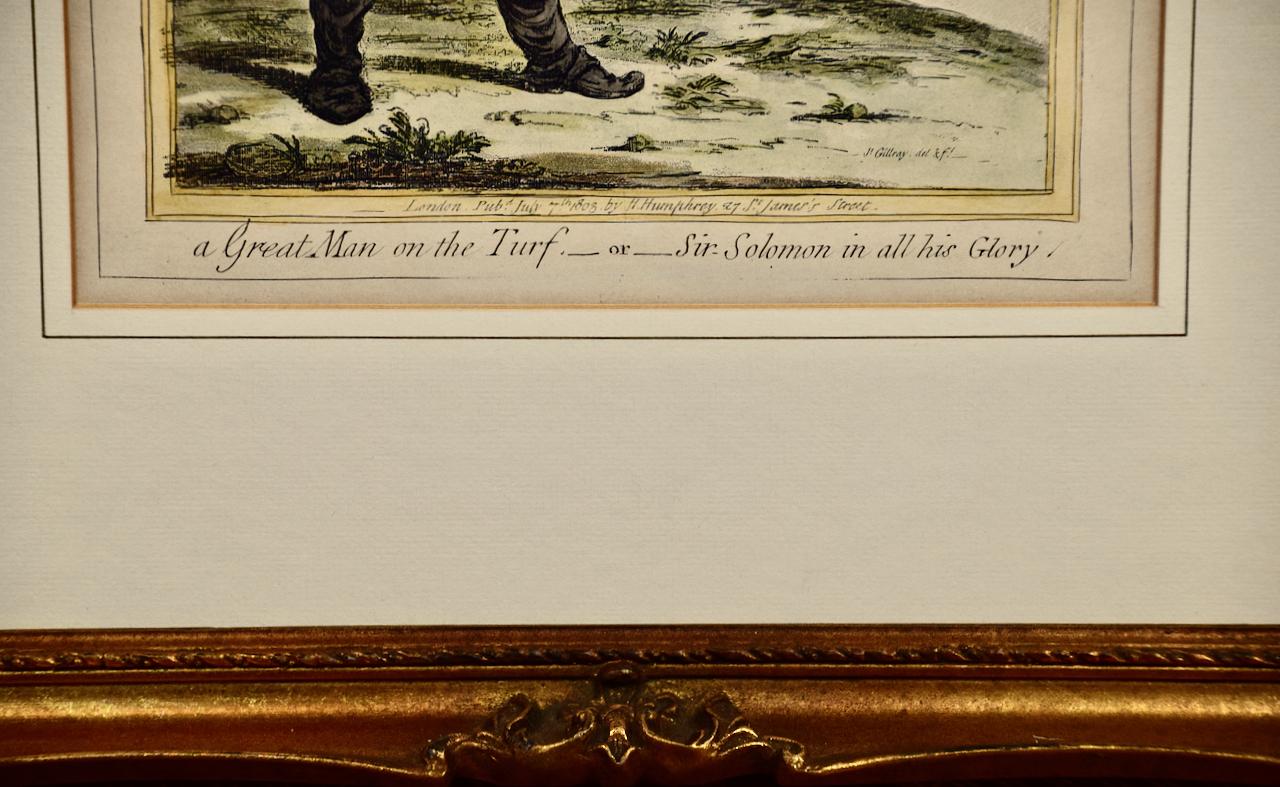 Js. Gillray. del & ft.
London. Pubd. July 7th 1803. by H. Humphrey. 27 St. James's Street.
a Great Man on the Turf. — or — Sir Solomon in all his Glory!